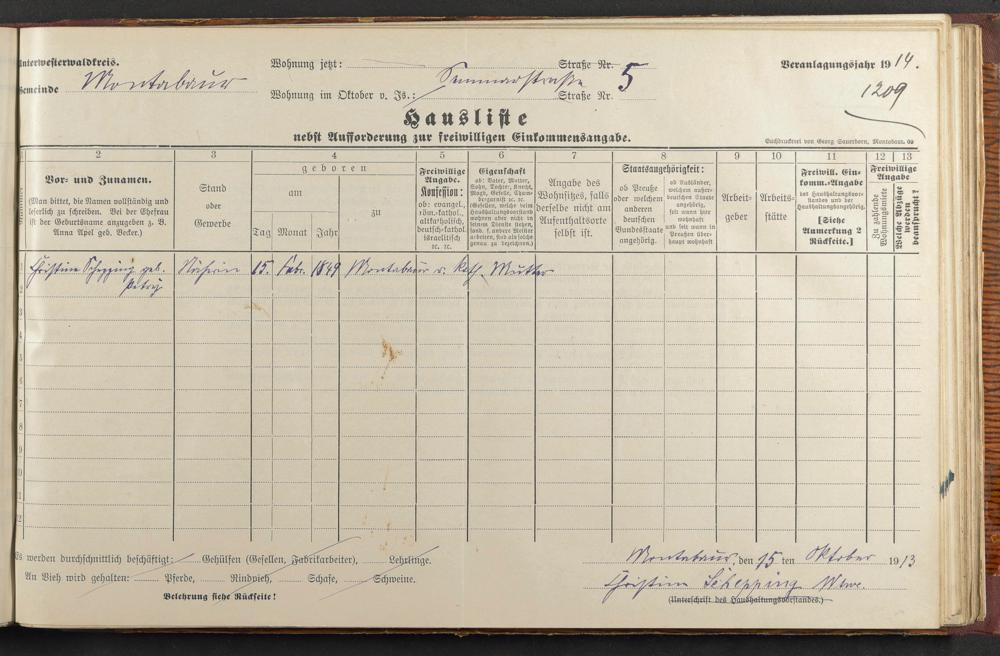 Unterwesterwaldkreis.
Gemeinde Montabaur
Wohnung jetzt: Straße Nr.
Seminarstraße 5
Wohnung im Oktober v. Js.: Straße Nr.
Veranlagungsjahr 1914.
1209
Hausliste
nebst Aufforderung zur freiwilligen Einkommensangabe.
Buchdruckerei von Georg Sauerborn, Montabaur.
2 3 4 5 6 7 8 9 10 11 12 13
Vor- und Zunamen.
(Man bittet, die Namen vollständig und
leserlich zu schreiben. Bei der Ehefrau
ist der Geburtsname anzugeben z. B.
Anna Apel geb. Becker.)
Stand
oder
Gewerbe
geboren
am
zu
Tag Monat Jahr
Freiwillige
Angabe.
Konfession:
ob: evangel.,
röm.-kathol.,
altkatholisch,
deutsch-kathol.
israelitisch
ec. ec.
Eigenschaft
ob: Vater, Mutter,
Sohn, Tochter, Knecht,
Magd, Geselle, Cham-
bergarnist ec. ec.
(Gesellen, welche beim
Haushaltungsvorstand
wohnen aber nicht in
seinem Dienste stehen,
sind als solche
genau zu bezeichnen.)
Angabe des
Wohnsitzes, falls
derselbe nicht am
Aufenthaltsorte
selbst ist.
Staatsangehörigkeit:
ob Preuße
oder welchem
anderen
deutschen
Bundesstaate
angehörig.
ob Ausländer,
welchem außer-
deutschen Staate
angehörig,
seit wann hier
wohnhaft
und seit wann in
Preußen über-
haupt wohnhaft
Arbeit-
geber
Arbeits-
stätte
Freiwill. Ein-
komm.-Angabe
des Haushaltungsvor-
standes und der
Haushaltungsangehörig.
[Siehe
Anmerkung 2
Rückseite.]
Freiwillige
Angabe
Zu zahlende
Wohnungsmiete
Welche Abzüge
werden
beansprucht?
1 Christine Schepping geb. Näherin 15. Febr. 1849 Montabaur r. Kath. Mutter
2 Petry
3
4
5
6
7
8
9
10
11
12
Es werden durchschnittlich beschäftigt: Gehülfen (Gesellen, Fabrikarbeiter), Lehrlinge.
An Vieh wird gehalten: Pferde, Rindvieh, Schafe, Schweine.
Belehrung siehe Rückseite!
Montabaur, den 15 ten Oktober 1913
Christine Schepping Wwe.
(Unterschrift des Haushaltungsvorstandes.)